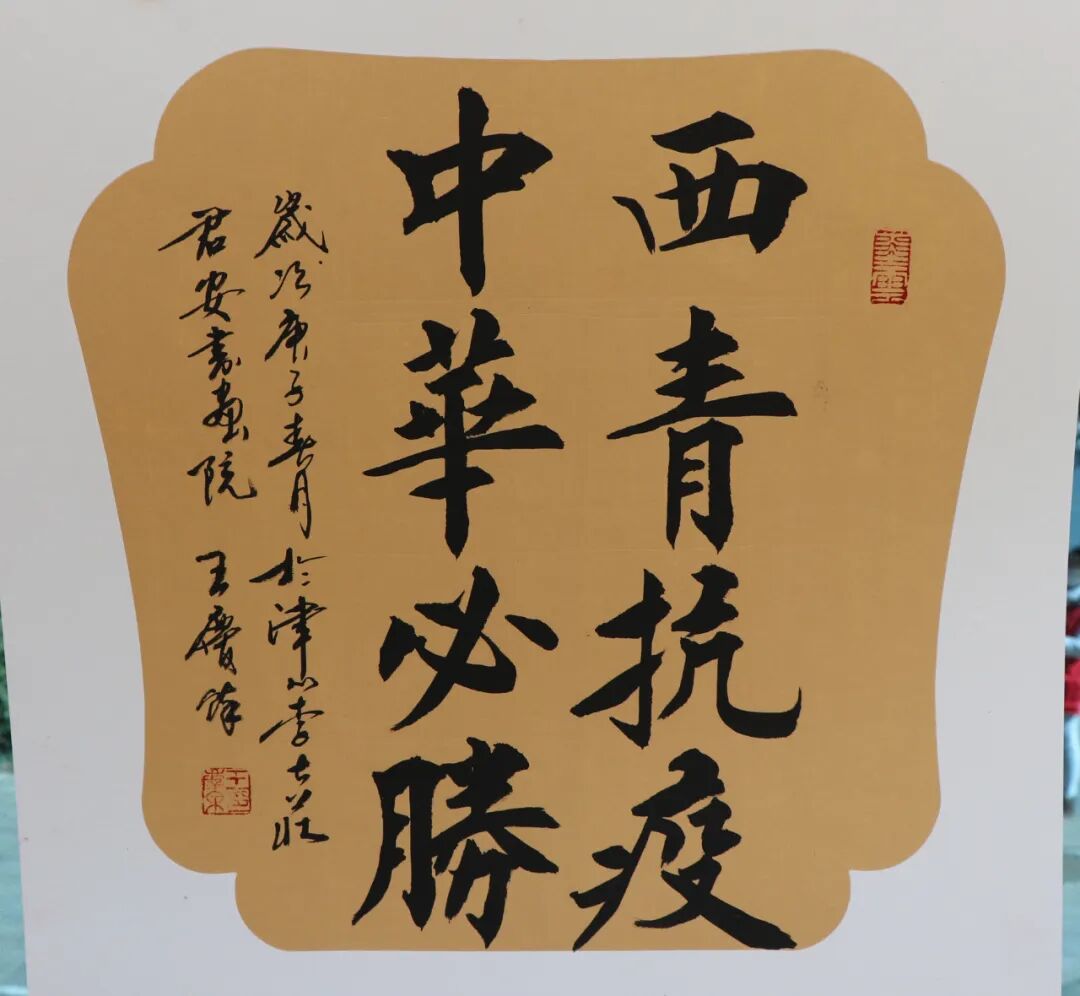 西青抗疫
中華必勝
歲次庚子春月於津小李七莊
君安書畫院 王慶